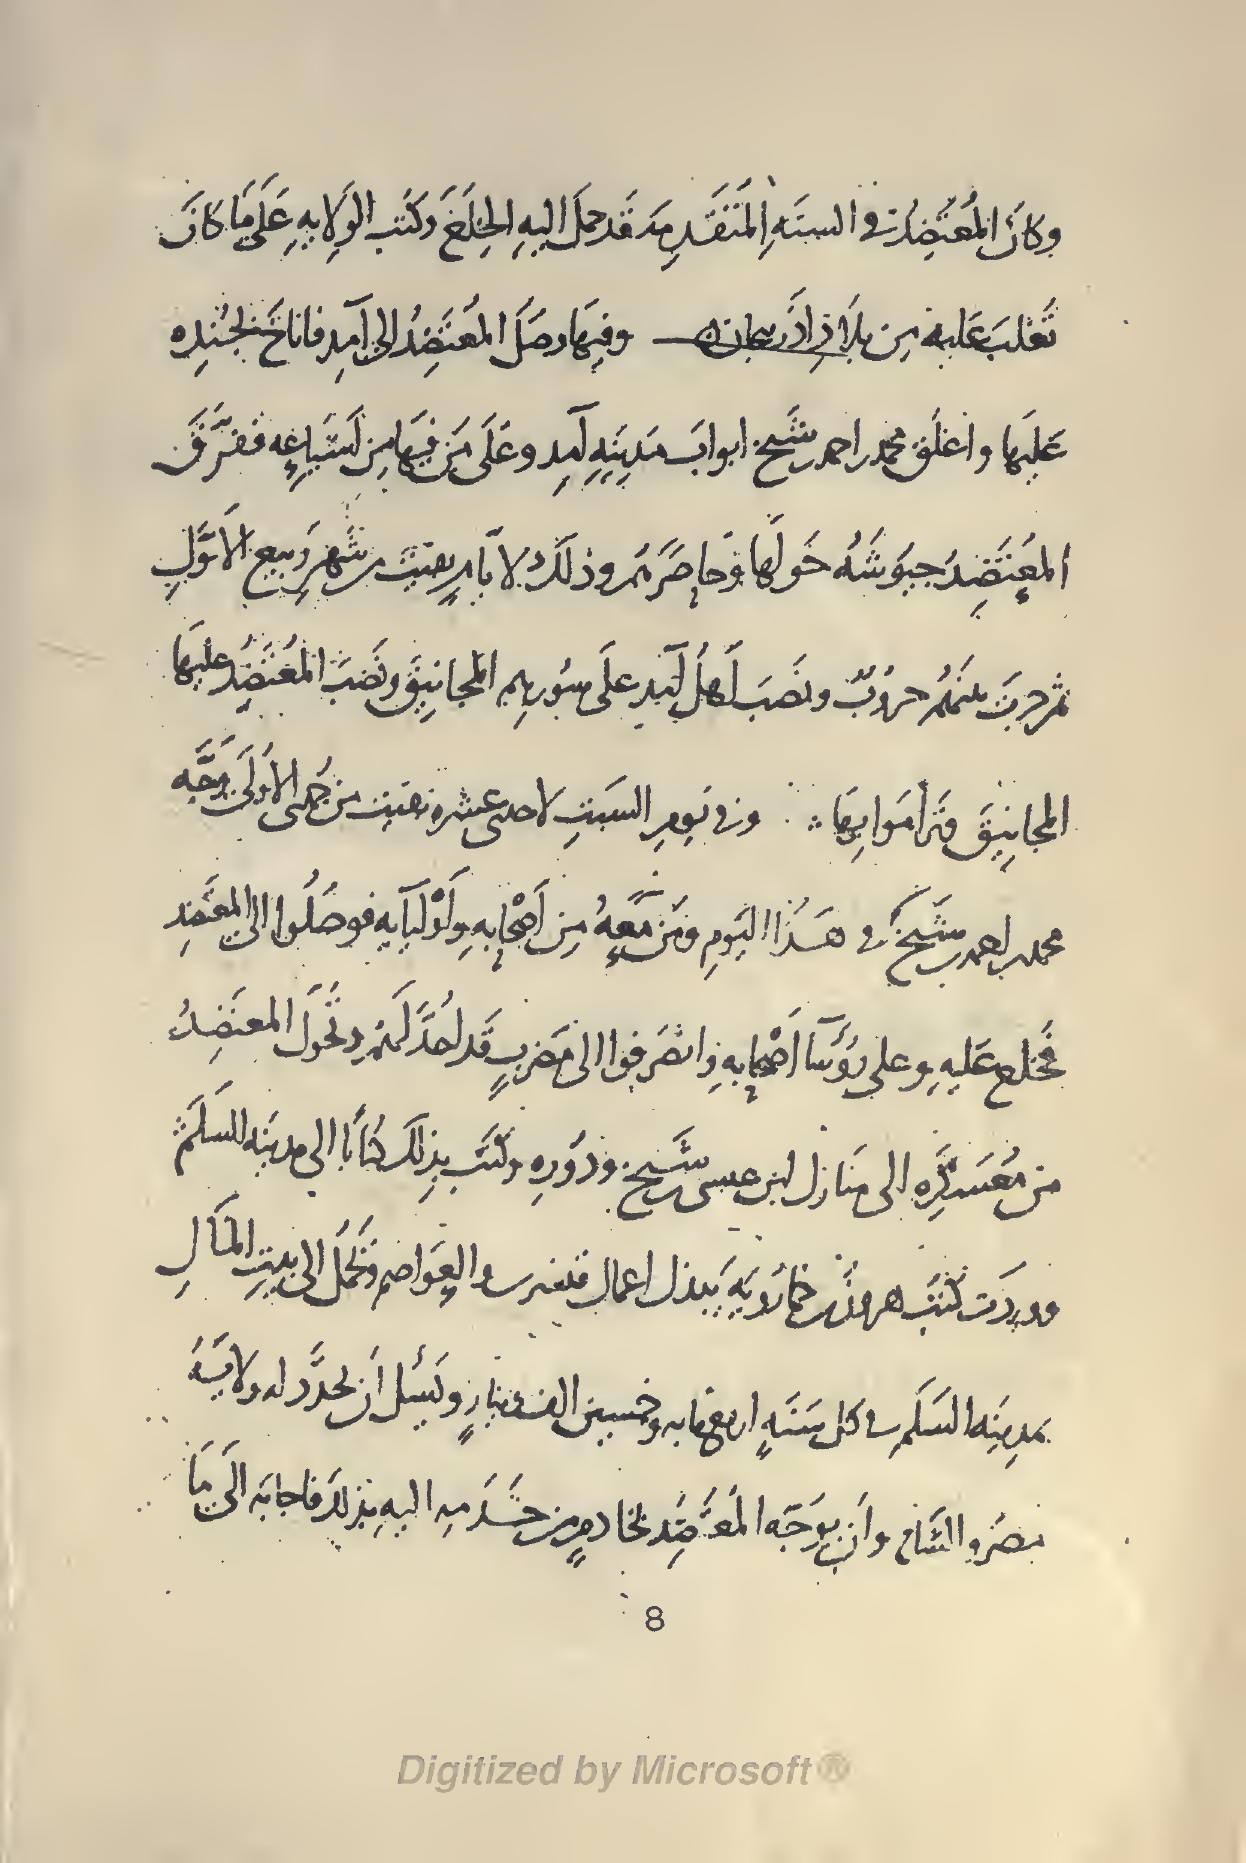 وكانَ المُعتَضِدُ في السنَهِ المُتَقَدِمَه قَد حمَل اليهِ الخِلَعَ وكتَبَ الوِلايهِ عَلَى مَا كانَ
تَغلبَ عَليهِ مِن بلَادِ اذَربيجان وفيهَا وصَلَ المعتَضِدُ الى آمِد فاناخَ بجُندِه
عَليها واغلَق محمد بن احمد بن شَيخ ابوابَ مَدينهِ آمِد وعَلَى مَن فيهَا مِن اشيَاعِه ففرّقَ
المعتَضِدُ جيُوشَهُ حَولَها وَحاصَرَهُم وذلكَ لايَّامٍ بقيَت من شَهر رَبيع الاوّلِ
ثم جرَت بينَهُم حروُبٌ ونصَبَ اَهلُ آمِد علَى سُورِهِم المجانيقَ ونَصَبَ المُعتَضِدُ عليهَا
المجانِيقَ وتَرَامَوا بِهَا وفي يَومِ السَبتِ لاحدى عشره بقيَت من جُمادى الاولَى وَجَّه
محمد بن احمد بن شَيخ في هَذا اليَومِ ومَن مَعهُ مِن اَصْحابهِ واَوْليآيهِ فوصَلُوا الى المعتَضِد
فَخلع عَليهِ وعلى رُؤَسآ اَصْحابهِ وانصَرفوا الى مَضربٍ قَد اُعدَّ لَهُم وتحَوّلَ المعتَضِدُ
من مُعَسكَرِه الى مَنازل ابن عيسى بن شَيخ ودُورِهِ وكتَبَ بذِلكَ كتَابًا الى مدينَه السَلَم
وورَدَت كتُبُ هرون بن خمارُويَهِ يَبذل اعمال قنسرين والعَواصِم ويَحملُ الى بيتِ المَالِ
بمدِينهِ السَلَمِ في كل سَنَهٍ اربعمايه وخمسين الف دينارٍ ويَسْئل اَن يجدَّد له ولايَتهُ
مصرَ والشَام وان يوَجّه المُعتَضِد بخادمٍ من خَدَمِه اليهِ بذلك فاجابَه الَى مَا
8
Digitized by Microsoft®